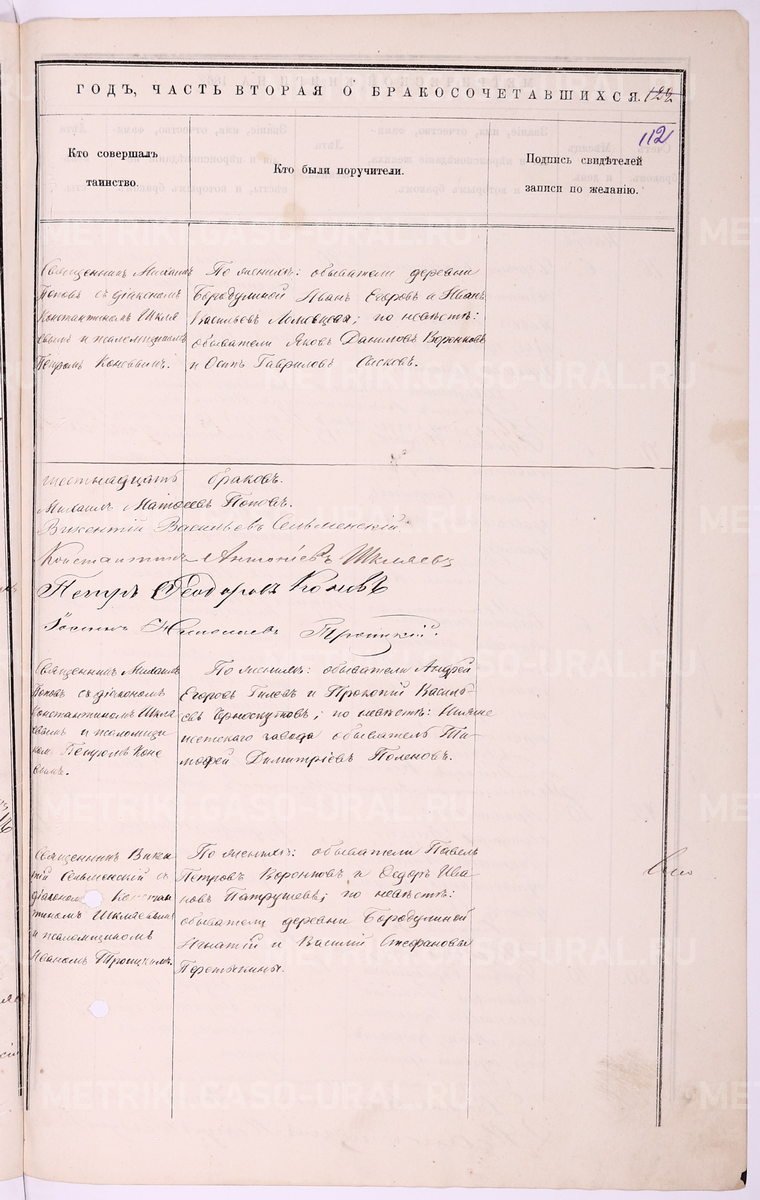 ГОДЪ, ЧАСТЬ ВТОРАЯ О БРАКОСОЧЕТАВШИХСЯ.
112
Кто совершалъ
таинство.
Кто были поручители.
Подпись свидѣтелей
записи по желанію.
Священникъ Михаилъ
Поповъ съ діакономъ
Константиномъ Шкля
евымъ и псаломщикомъ
Петромъ Коневымъ.
По женихѣ: обыватели деревни
Бородулиной Иванъ Егоровъ и Иванъ
Васильевъ; по невѣстѣ:
обыватели Яковъ Даниловъ Воронковъ
и Осипъ Гавриловъ Сысковъ.
шестнадцать браковъ.
Михаилъ Матѳеевъ Поповъ.
Викентій Васильевъ Сельменскій.
Константинъ Антоніевъ Шкляевъ
Петръ Ѳеодоровъ Коневъ
Троицкій.
Священникъ Михаилъ
Поповъ съ діакономъ
Константиномъ Шкля
евымъ и псаломщи
комъ Петромъ Коне
вымъ.
По женихѣ: обыватели Андрей
Егоровъ Гилевъ и Прокопій Василь
евъ Черноскутовъ; по невѣстѣ:
завода обыватель Ти-
мофей Димитріевъ Поленовъ.
Священникъ Викен
тій Сельменскій съ
діакономъ Констан
тиномъ Шкляевымъ
и псаломщикомъ
Троицкимъ.
По женихѣ: обыватели Павелъ
Петровъ Воронковъ и Ѳедоръ Ива
новъ Патрушевъ; по невѣстѣ:
обыватели деревни Бородулиной
Игнатій и Василій Стефановы
METRIKI.GASO-URAL.RU